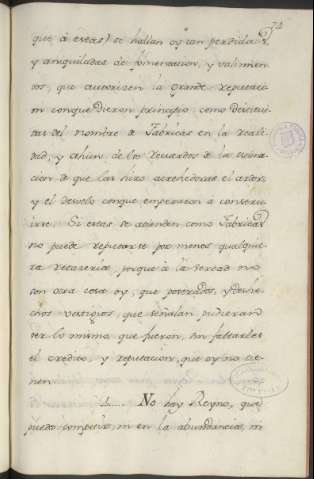 74
que à estas) se hallan oy tan perdidas,
y aniquiladas de fomentacion, y valimien
tos, que autorizen la grande reputacio
n conque dieron principio, como destitui
das del nombre de Fabricas en la reali
dad, y ahun de los recuerdos de la estima
cion de que las hizo acrehedoras el ardor,
y el desvelo conque empezaron a constru
irse. Si estas se atienden como Fabricas
no puede reputarse por menos qualquie
ra receveria, porque à la verdad no
son otra cosa oy, que poteradas, y deshe
chos vestigios, que señalan pudieran
ser lo mismo que fueron, sin faltarles
el credito, y reputacion, que oy no tie
nen
1.... No hay Reyno, que
pueda competir, ni en la abundancia, ni